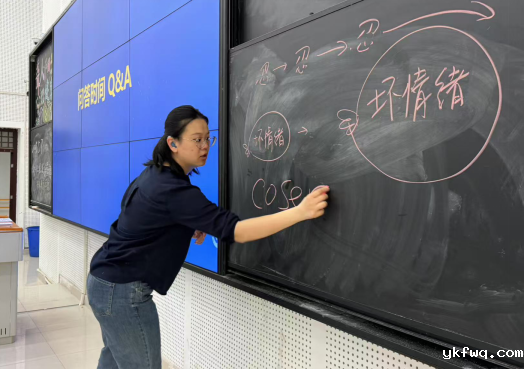 问答时间 Q&A
忍 → 忍 → 忍
坏情绪
坏情绪 →
cose
ykfwq.com